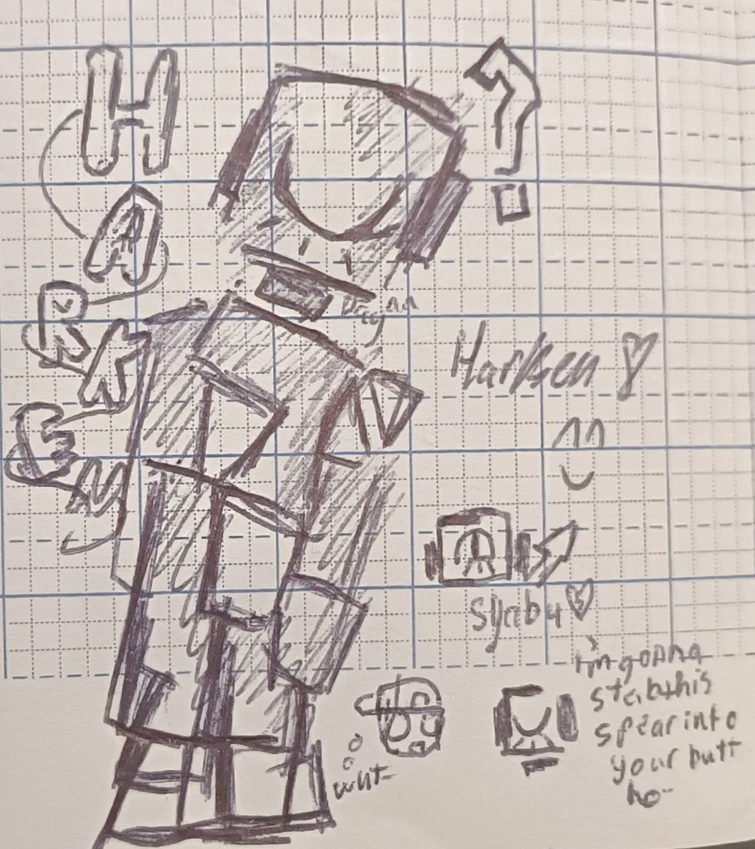 HARKEN
?
Harken
Syabu
i'm gonna
stab this
spear into
your butt
ho-
wut-